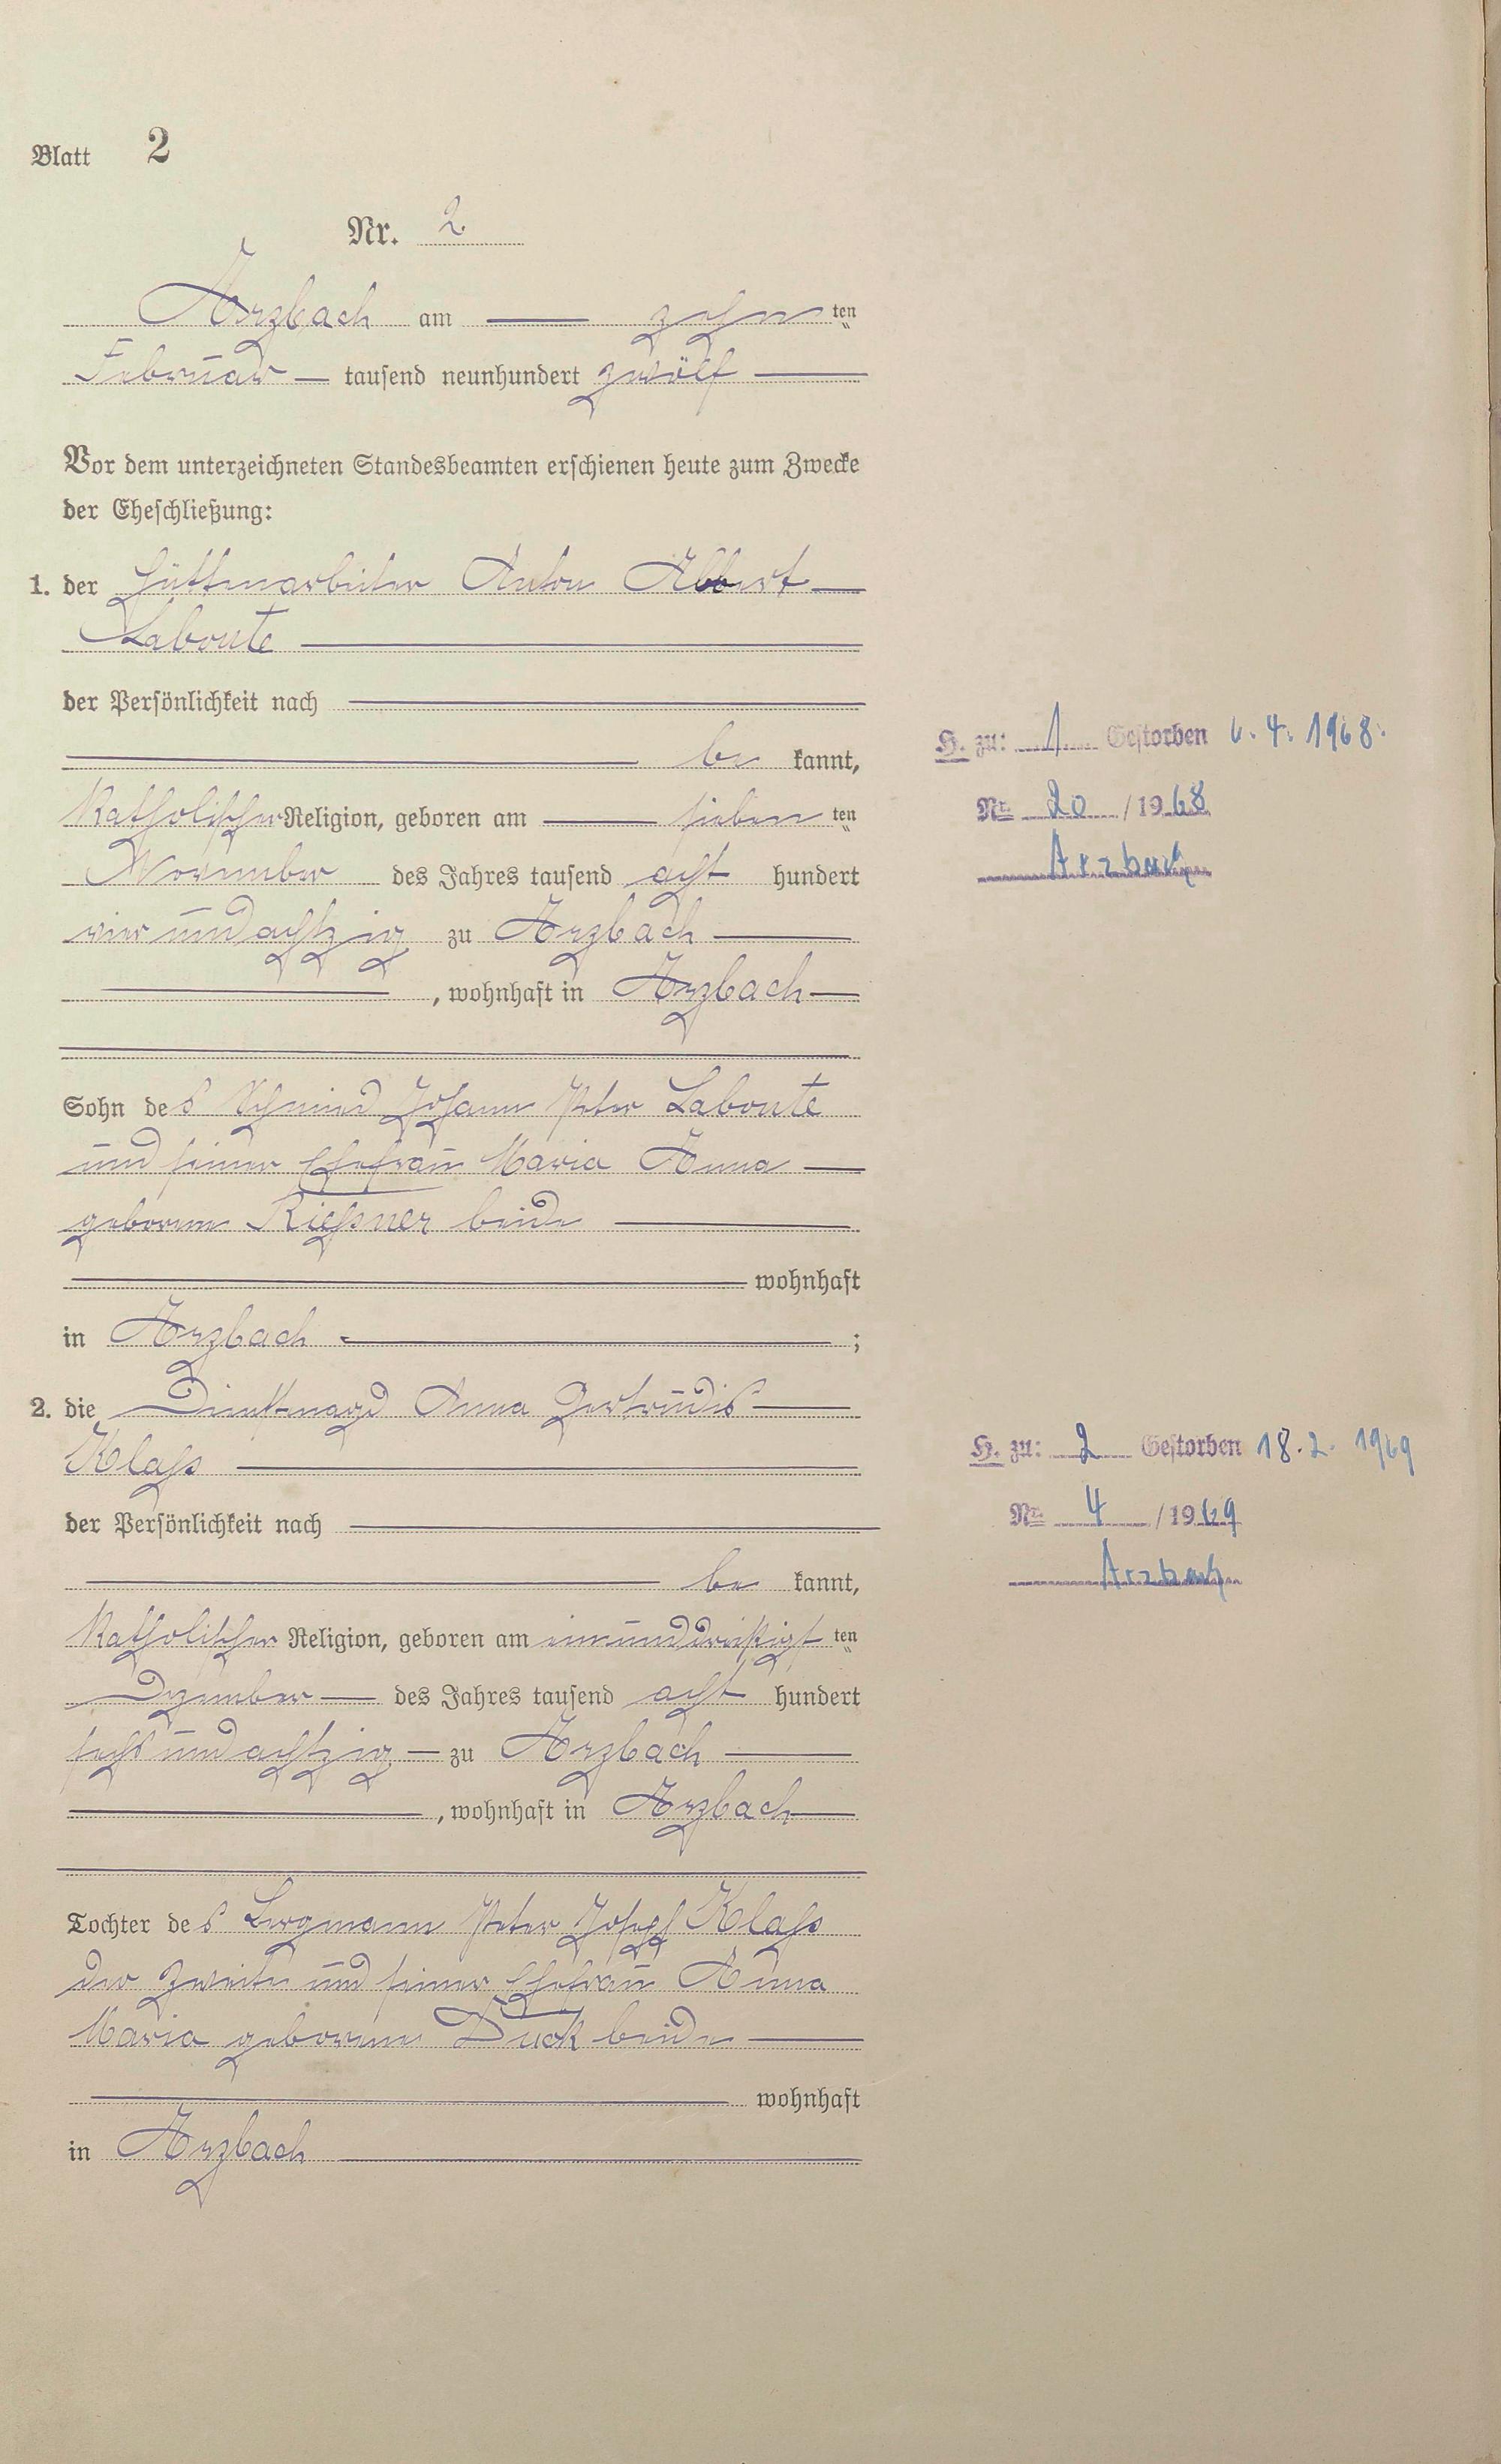 Blatt 2
Nr. 2.
Arzbach am zehn ten
Februar tausend neunhundert zwölf
Vor dem unterzeichneten Standesbeamten erschienen heute zum Zwecke
der Eheschließung:
1. der Hüttenarbeiter Anton Albert
Labonte
der Persönlichkeit nach
be kannt,
Katholischer Religion, geboren am sieben ten
November des Jahres tausend acht hundert
vier und achtzig zu Arzbach
, wohnhaft in Arzbach
Sohn des Schmied Johann Peter Labonte
und seiner Ehefrau Maria Anna
geborene Rießner beide
wohnhaft
in Arzbach ;
2. die Dienstmagd Anna Gertrudis
Klaß
der Persönlichkeit nach
be kannt,
Katholischer Religion, geboren am einunddreißigst ten
Dezember des Jahres tausend acht hundert
sechs und achtzig zu Arzbach
, wohnhaft in Arzbach
Tochter des Bergmann Peter Josef Klaß
der Zweite und seiner Ehefrau Anna
Maria geborene Duck beide
wohnhaft
in Arzbach
H. zu: 1 Gestorben 6. 4. 1968.
Nr. 20 / 1968
Arzbach
H. zu: 2 Gestorben 18. 2. 1969
Nr. 4 / 1969
Arzbach